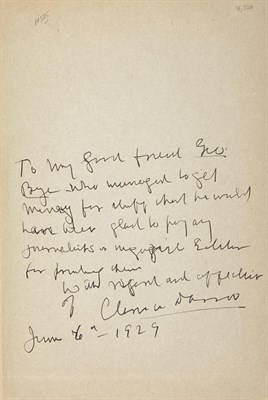 To my good friend Geo.
Bye who managed to get
money for stuff that he would
have been glad to pay any
journalists or magazine Editor
for printing them
With regard and affection
of Clarence Darrow
June 6th - 1929